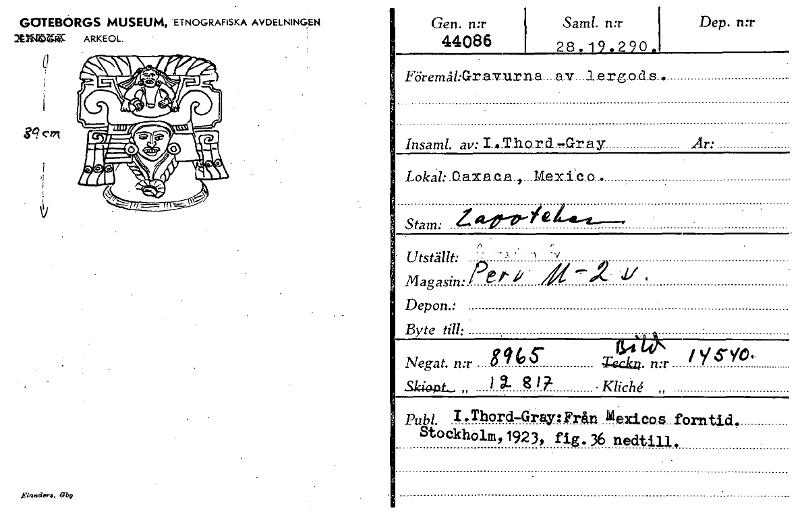 GÖTEBORGS MUSEUM, ETNOGRAFISKA AVDELNINGEN
ARKEOL.
39 cm
Elanders, Gbg
Gen. n:r Saml. n:r Dep. n:r
44086 28.19.290.
Föremål: Gravurna av lergods.
Insaml. av: I.Thord-Gray År:
Lokal: Oaxaca, Mexico.
Stam: Zapoteker
Utställt:
Magasin: Peru M-2 v.
Depon.:
Byte till:
Bild
Negat. n:r 8965 Teckn. n:r 14540.
Skiopt. „ 12 817 Kliché „
Publ. I.Thord-Gray:Från Mexicos forntid.
Stockholm,1923, fig.36 nedtill.